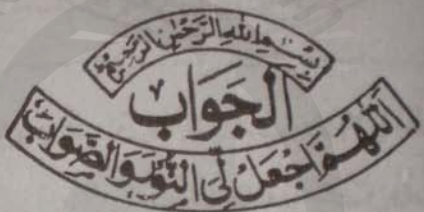 بِسْمِ اللهِ الرَّحْمٰنِ الرَّحِيْمِ
اَلْجَوَاب
اَللّٰهُمَّ اجْعَلْ لِّیْ النُّوْرَ وَالصَّوَابَ